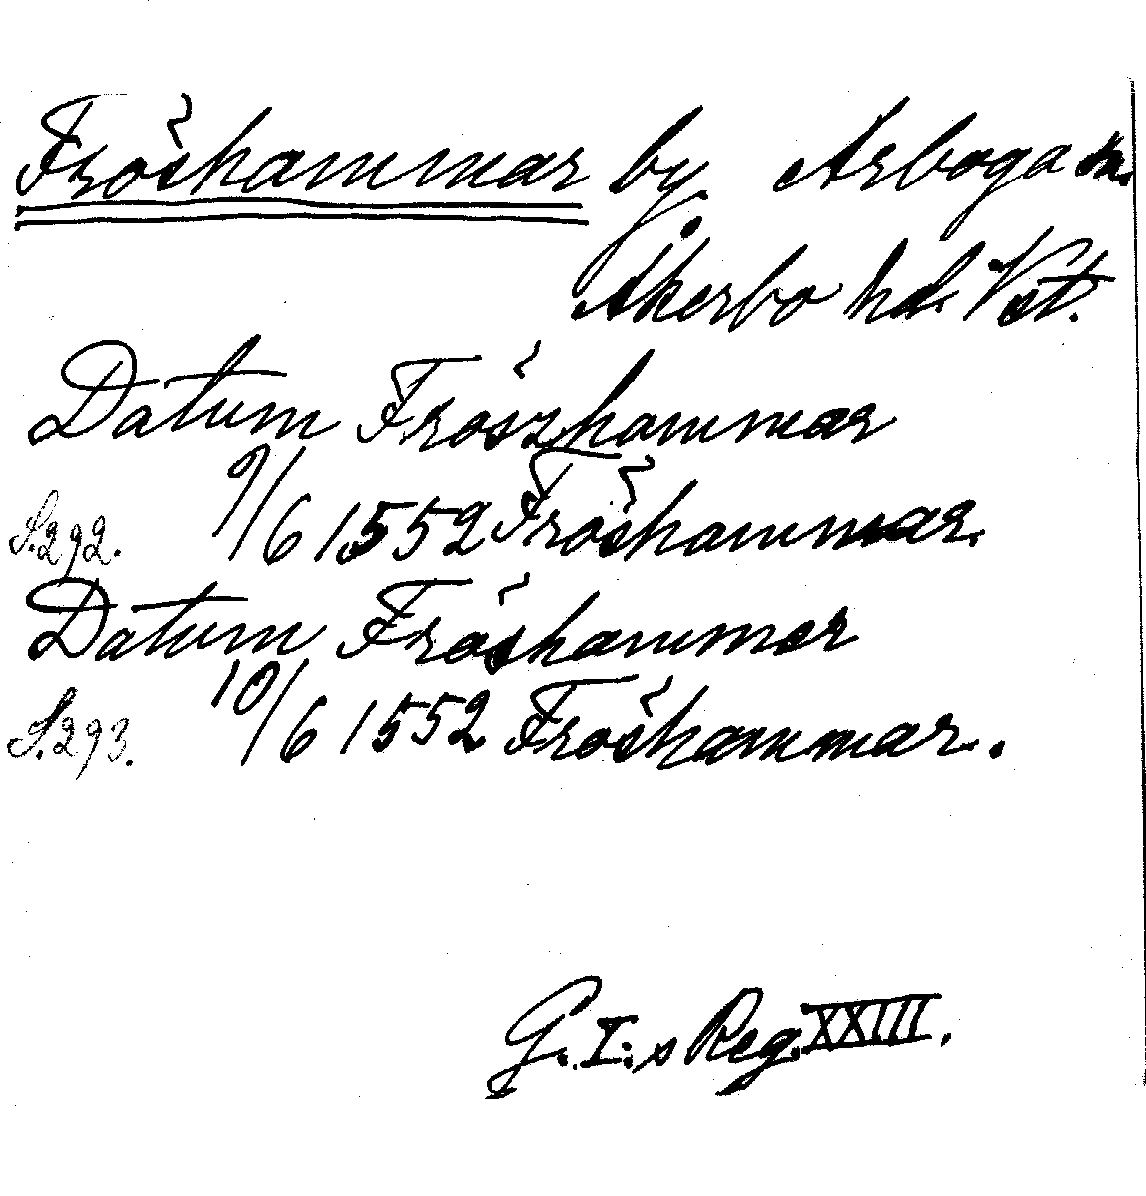 Fröshammar by, Arboga sn.
Åkerbo hd. Vst.
Datum Fröszhammar
S. 292. 9/6 1552 Fröshammar.
Datum Fröshammer
S. 293. 10/6 1552 Fröshammar.
G. I:s Reg. XXIII.